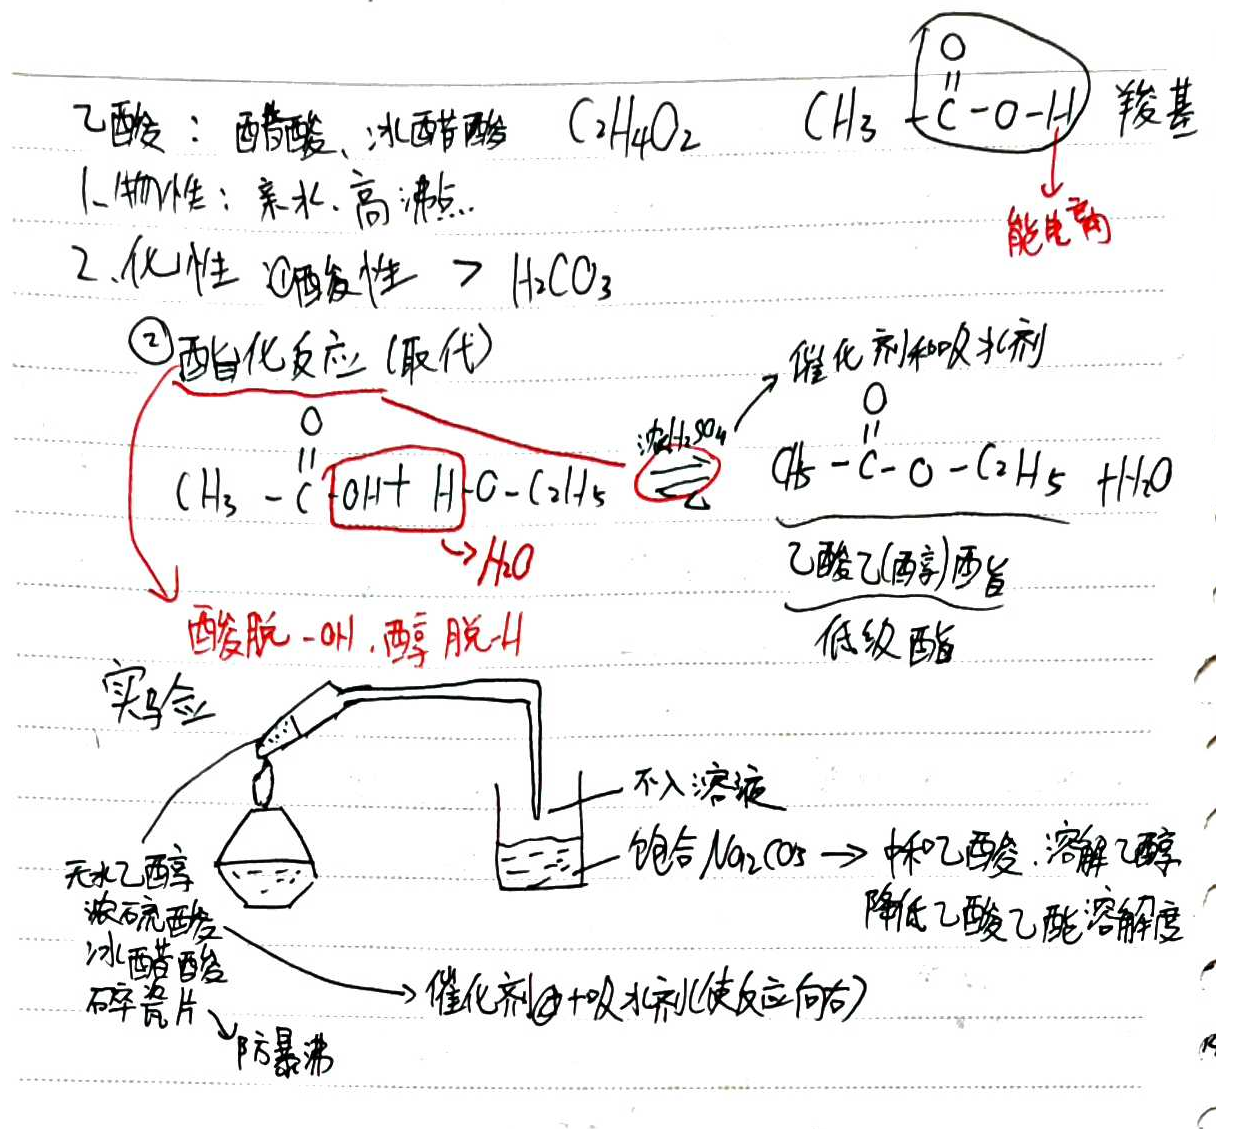 O
||
乙酸：醋酸、冰醋酸 C2H4O2 CH3-C-O-H 羧基
能电离
1.物性：亲水.高沸点.
2.化性 ①酸性 > H2CO3
②酯化反应(取代)
催化剂和吸水剂
O
||
CH3-C-OH+H-O-C2H5
浓H2SO4
⇌
O
||
CH3-C-O-C2H5+H2O
→H2O
乙酸乙(醇)酯
低级酯
酸脱-OH.醇脱-H
实验
不入溶液
饱合Na2CO3→中和乙酸.溶解乙醇
降低乙酸乙酯溶解度
无水乙醇
浓硫酸
冰醋酸
碎瓷片
→催化剂+吸水剂(使反应向右)
防暴沸